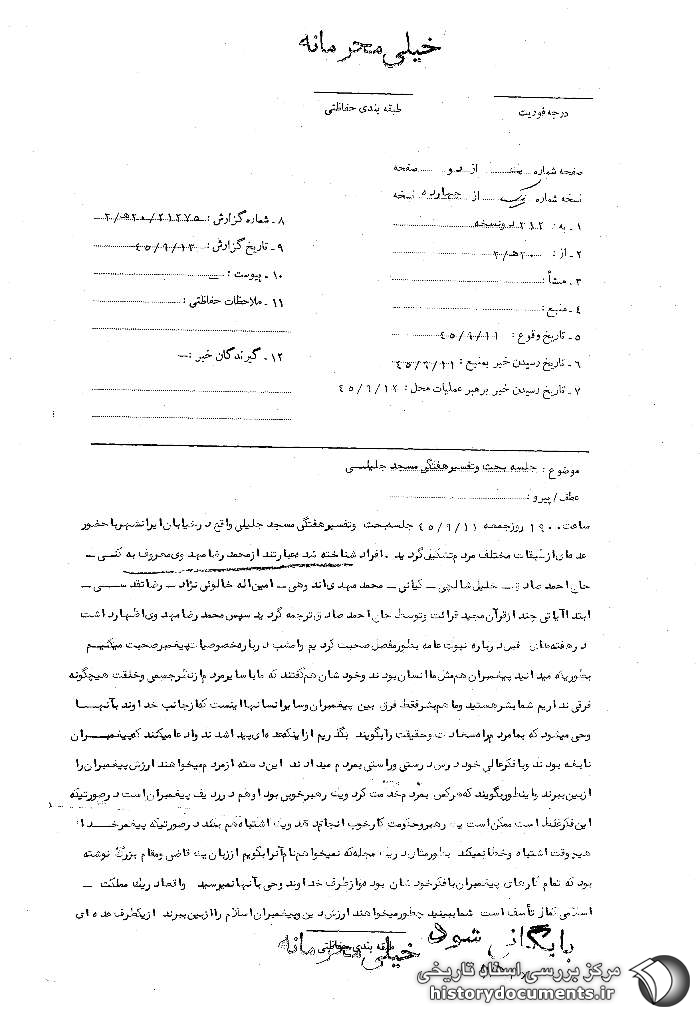 خیلی محرمانه
طبقه بندی حفاظتی
درجه فوریت
صفحه شماره یک از دو صفحه
نسخه شماره یک از چهارده نسخه
۱ـ به: ۳۱۲ دونسخه
۲ـ از: ۲۰ه/۳
۳ـ منشأ:
۴ـ منبع:
۵ـ تاریخ وقوع: ۴۵/۹/۱۱
۶ـ تاریخ رسیدن خبر بمنبع: ۴۵/۹/۱۱
۷ـ تاریخ رسیدن خبر برهبر عملیات محل: ۴۵/۹/۱۲
۸ـ شماره گزارش: ۲۰/۲۱۲۷۵ه/۳
۹ـ تاریخ گزارش: ۴۵/۹/۱۳
۱۰ـ پیوست:
۱۱ـ ملاحظات حفاظتی:
۱۲ـ گیرندگان خبر:
موضوع: جلسه بحث وتفسیرهفتگی مسجد جلیلی
عطف/پیرو:
ساعت ۱۹۰۰ روزجمعه ۴۵/۹/۱۱ جلسه بحث وتفسیرهفتگی مسجد جلیلی واقع درخیابان ایرانشهر باحضور
عده‌ای ازطبقات مختلف مردم تشکیل گردید. افراد شناخته شده عبارتند ازمحمدرضا مهدوی معروف به کنی ـ
حاج احمد صادق ـ خلیل شالچی ـ کیانی ـ محمد مهدی اندوهی ـ امین‌اله خالوئی نژاد ـ رضا تقدسی ـ
ابتدا آیاتی چند ازقرآن مجید قرائت وتوسط حاج احمد صادق ترجمه گردید سپس محمد رضا مهدوی اظهار داشت
درهفته‌های قبل درباره نبوت عامه بطورمفصل صحبت کردیم وامشب درباره خصوصیات پیغمبر صحبت میکنیم
بطوریکه میدانید پیغمبران هم مثل ما انسان بودند وخودشان هم گفتند که ما با سایر مردم ازنظرجسمی وخلقت هیچگونه
فرقی نداریم شما بشرهستید وما هم بشرفقط فرق بین پیغمبران وسایرانسانها اینست که ازجانب خداوند بآنها
وحی میشود که بمردم راه سعادت وحقیقت را بگویند بگذریم ازاینکه عده‌ای پیدا شدند وادعا میکنند که پیغمبران
نابغه بودند وبا فکرعالی خود درس درستی وراستی بمردم میدادند این دسته ازمردم میخواهند ارزش پیغمبران را
ازبین ببرند واینطوربگویند که هرکس بمردم خدمت کرد ویک رهبرخوبی بود اوهم درردیف پیغمبران است درصورتیکه
این فکرغلط است ممکن است یک رهبر وحکومت کارخوب انجام دهد ویک اشتباه هم بکند درصورتیکه پیغمبر خدا
هیچوقت اشتباه وخطا نمیکند بطورمثال دریک مجله که نمیخواهم نام آنرا بگویم اززبان یک قاضی ومقام بزرگ نوشته
بود که تمام کارهای پیغمبران با فکرخودشان بوده وازطرف خداوند وحی بآنها نمیرسید واقعاً دریک مملکت ـ
اسلامی تمام تأسف است شما ببینید چطورمیخواهند ارزش دین وپیغمبران اسلام را ازبین ببرند ازیکطرف عده‌ای
بایگانی شود
طبقه بندی حفاظتی
خیلی محرمانه
مرکز بررسی اسناد تاریخی
historydocuments.ir